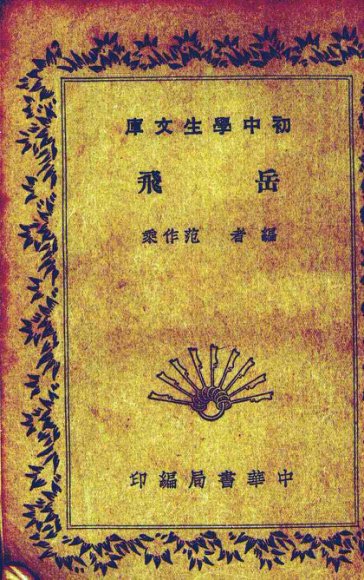 初中學生文庫
岳飛
編者 范作乘
中華書局編印